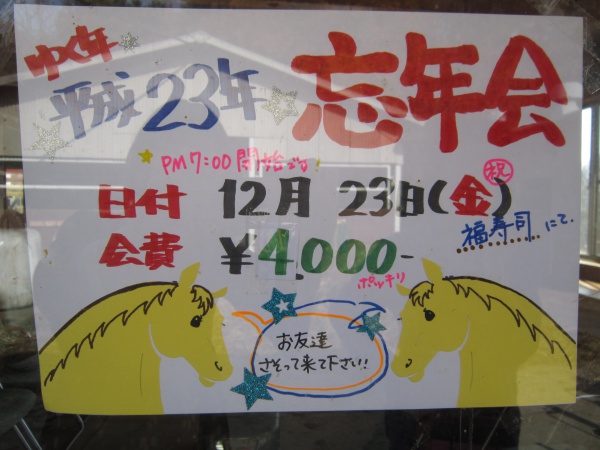 ゆく年
平成23年 忘年会
PM7:00開始
日付 12月23日(金)㊗
福寿司にて.
会費 ¥4,000-
ポッキリ
お友達
さそって来て下さい!!